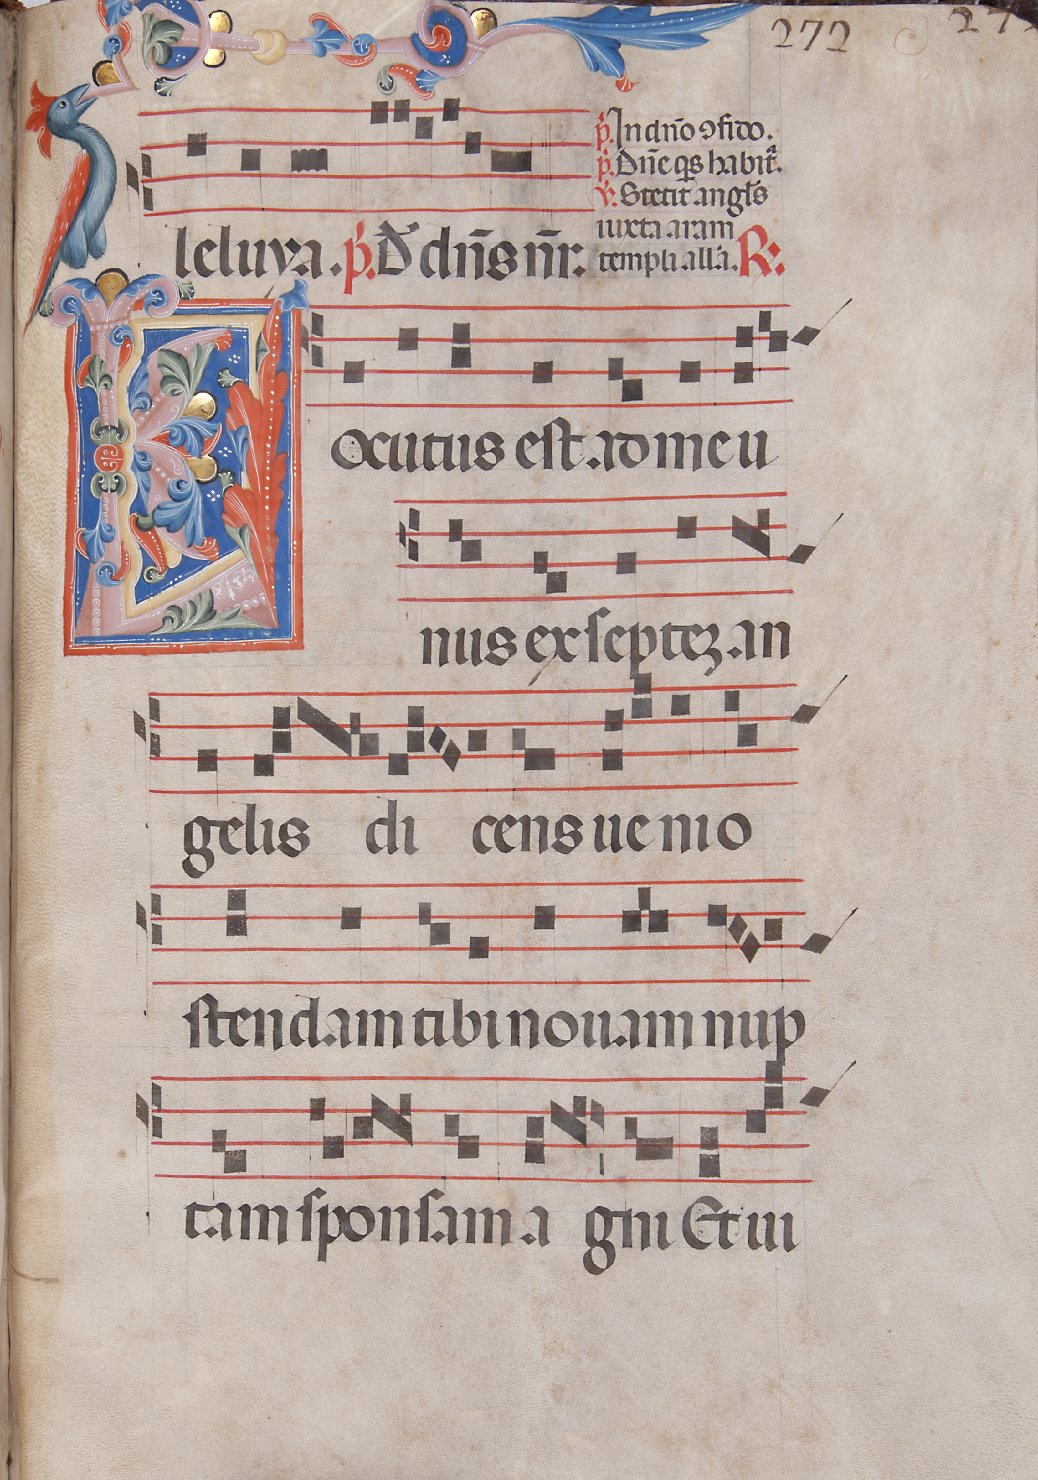 272
27
leluya. p̄. D̄ dn̄s nr̄.
p̄. In dn̄o ꝯfido.
p̄. Dn̄e q̄s habit̄.
V̄. Stetit angl̄s
iuxta aram
templi all̄a. R̄.
Locutus est ad me u
nus ex septeꝫ an
gelis dicens ueni o
stendam tibi nouam nup
tam sponsam agni Et ui